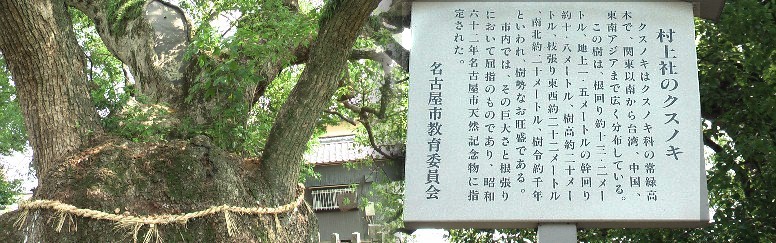 村上社のクスノキ
クスノキはクスノキ科の常緑高
木で、関東以南から台湾、中国、
東南アジアまで広く分布している。
この樹は、根回り約十三・二メー
トル、地上一・五メートルの幹回り
約十・八メートル、樹高約二十メー
トル、枝張り東西約二十二メートル
、南北約二十メートル、樹令約千年
といわれ、樹勢なお旺盛である。
市内では、その巨大さと根張り
において屈指のものであり、昭和
六十二年名古屋市天然記念物に指
定された。
名古屋市教育委員会